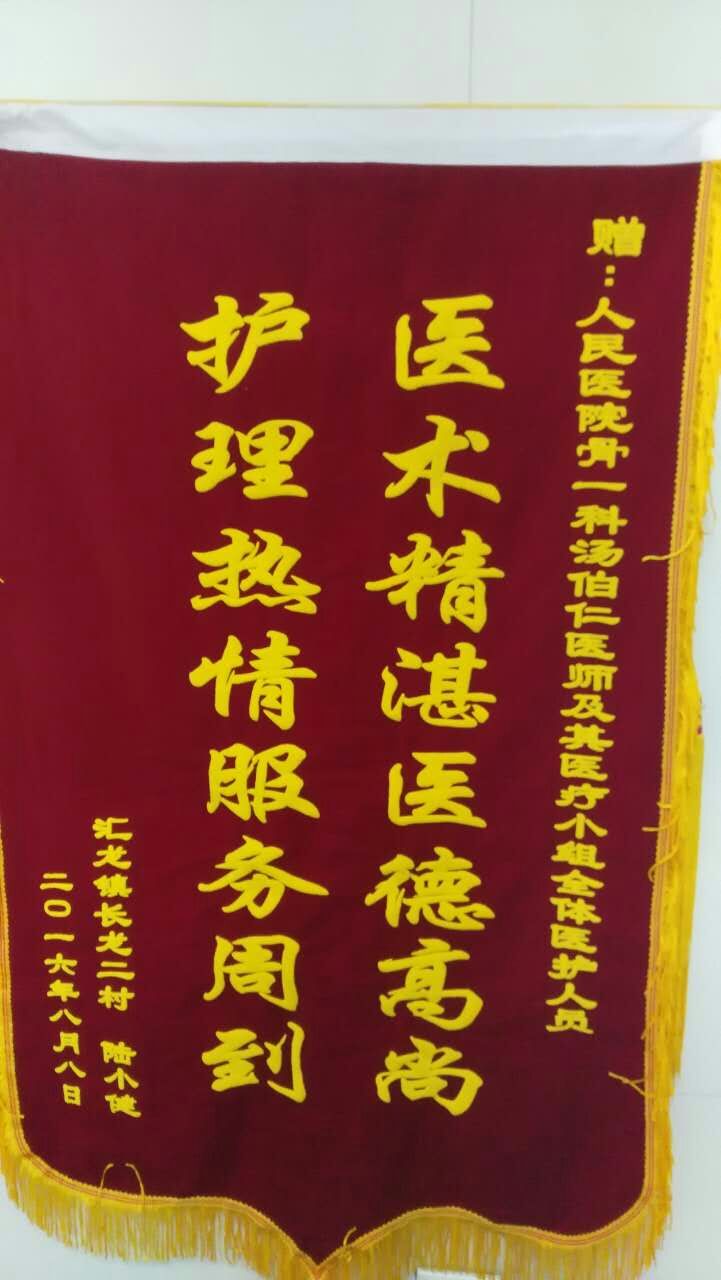 赠：人民医院骨一科汤伯仁医师及其医疗小组全体医护人员
医术精湛医德高尚
护理热情服务周到
汇龙镇长龙二村 陆小健
二〇一六年八月八日